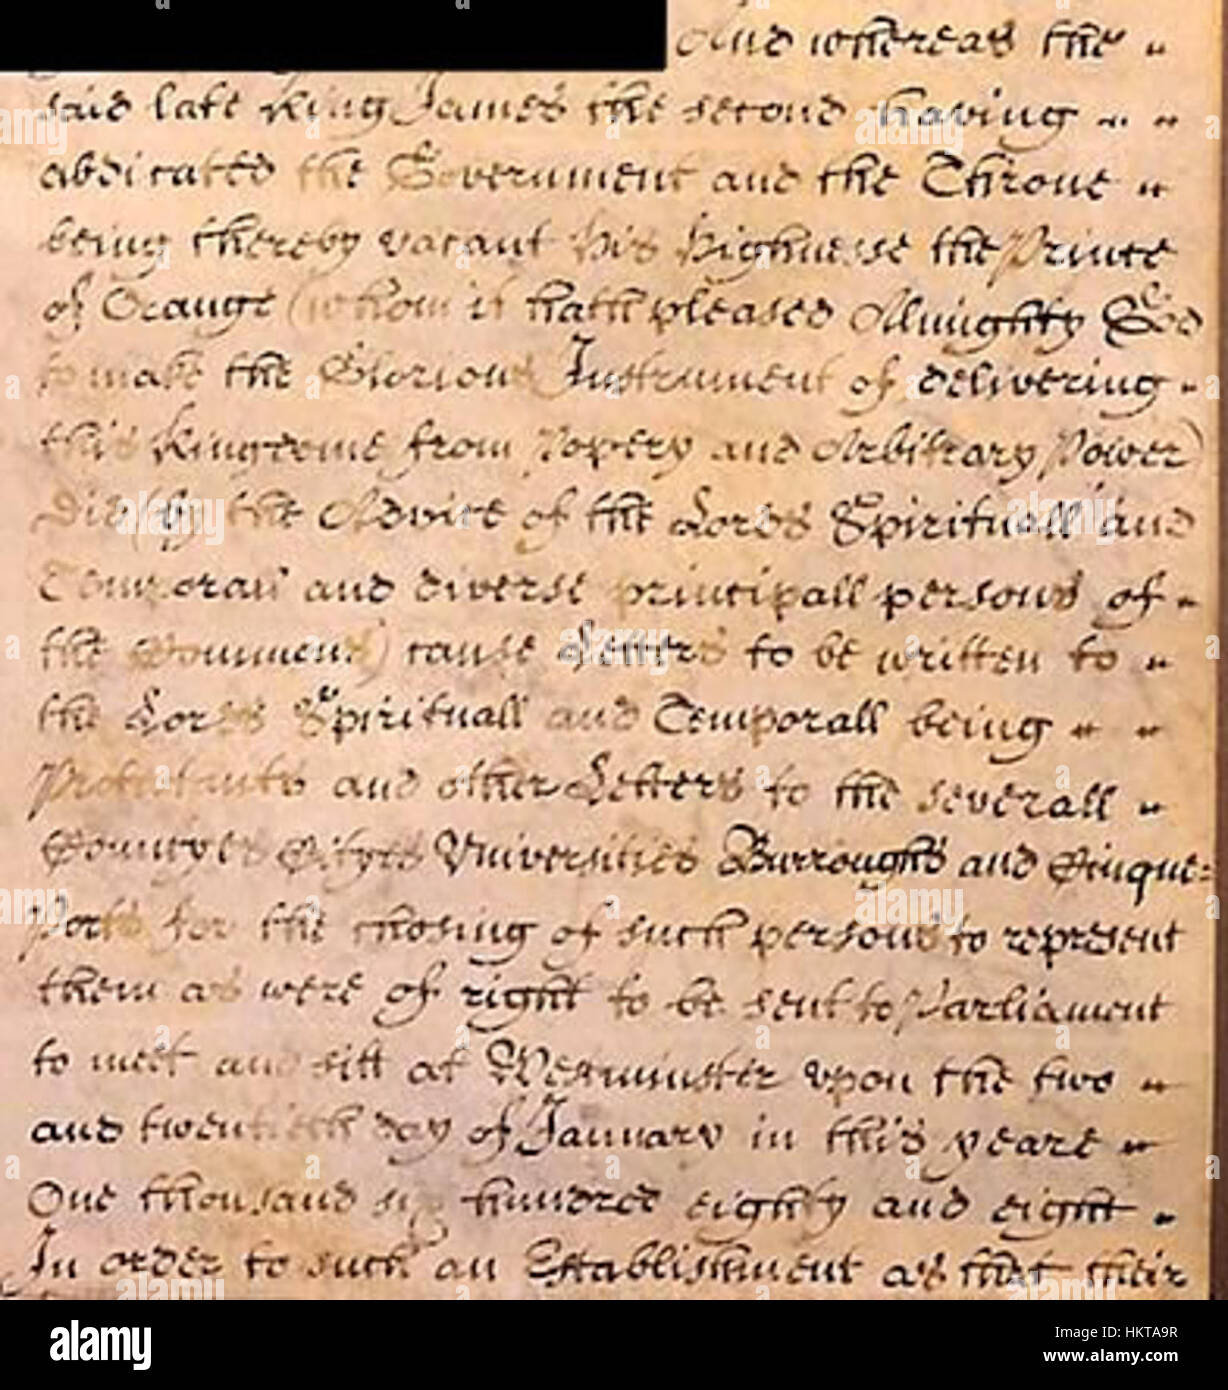 And whereas the
said late King James the second having
abdicated the Government and the Throne
being thereby vacant his Highnesse the Prince
of Orange (whom it hath pleased Almighty God
to make the Glorious Instrument of delivering
this Kingdome from Popery and Arbitrary Power)
Did (by the Advice of the Lords Spirituall and
Temporall and diverse principall persons of
the Commons) cause Letters to be written to
the Lords Spirituall and Temporall being
Protestants and other Letters to the severall
Countyes Cityes Universities Burroughs and Cinque=
Ports for the chosing of such persons to represent
them as were of right to be sent to Parliament
to meet and sitt at Westminster upon the two
and twentieth day of January in this yeare
One thousand six hundred eighty and eight
In order to such an Establishment as that their
a alamy stock photo
HKTA9R
www.alamy.com